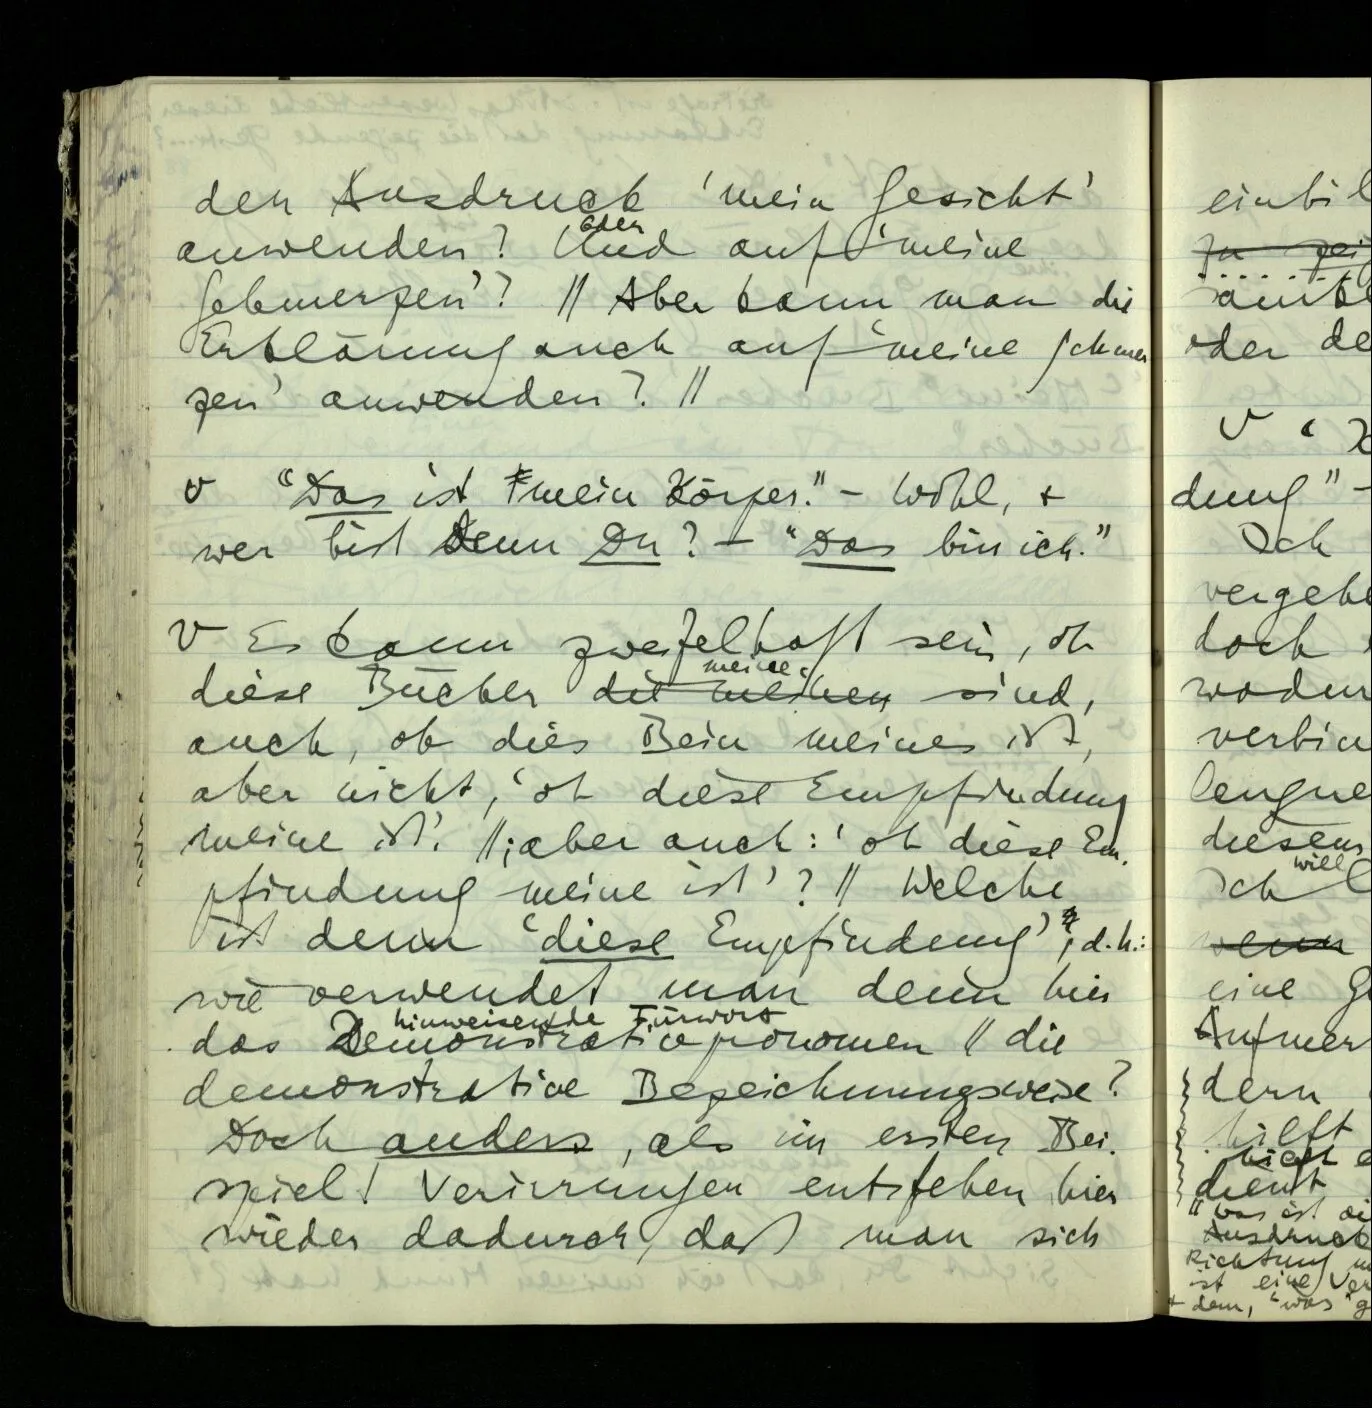 den Ausdruck 'mein Gesicht'
oder
anwenden? Und auf 'meine
Schmerzen'? || Aber kann man die
Erklärung auch auf 'meine Schmer
zen' anwenden? ||
V "Das ist mein Körper." – Wohl, +
wer bist Denn Du? – "Das bin ich."
V Es kann zweifelhaft sein, ob
meine
diese Bücher die meinen sind,
auch, ob dies Bein meines ist,
aber nicht, 'ob diese Empfindung
meine ist'. ||; aber auch: 'ob diese Em-
pfindung meine ist'? || Welche
ist denn 'diese Empfindung'; d.h.:
wie verwendet man denn hier
hinweisende Fürwort
das Demonstrativpronomen || die
demonstrative Bezeichnungsweise?
Doch anders, als im ersten Bei-
spiel! Verirrungen entstehen hier
wieder dadurch, daß man sich
einbil
oder de
V "
dung" –
Ich
vergehe
doch
wodur
verbin
leugne
diesem
will
Ich
wenn
eine
Aufmer
dern
hilft
nicht
dient
"Was ist
Ausdruck
Richtung
ist eine Ver
+ dem, 'was